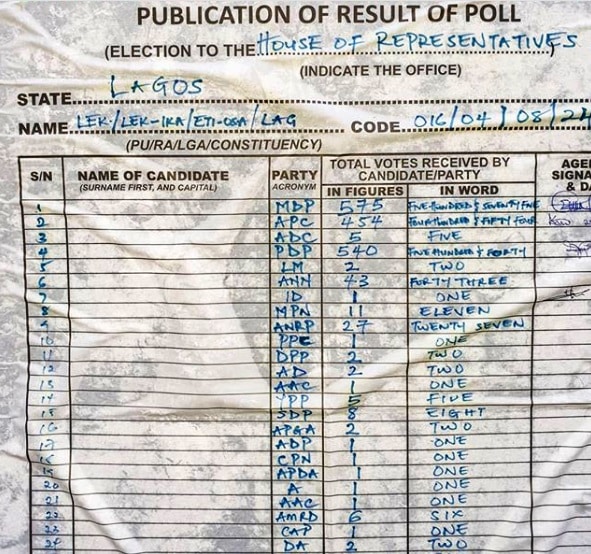 PUBLICATION OF RESULT OF POLL
(ELECTION TO THE HOUSE OF REPRESENTATIVES
(INDICATE THE OFFICE)
STATE LAGOS
NAME LEK/LEK-IKA/ETI-OSA/LAG CODE 016/04/08/24
(PU/RA/LGA/CONSTITUENCY)
S/N NAME OF CANDIDATE (SURNAME FIRST, AND CAPITAL) PARTY ACRONYM TOTAL VOTES RECEIVED BY CANDIDATE/PARTY IN FIGURES IN WORD AGE SIGNA & DA
1 MDP 575 FIVE HUNDRED & SEVENTY FIVE
2 APC 454 FOUR HUNDRED & FIFTY FOUR
3 ADC 5 FIVE
4 PDP 540 FIVE HUNDRED & FORTY
5 LM 2 TWO
6 ANN 43 FORTY THREE
7 ID 1 ONE
8 MPN 11 ELEVEN
9 ANRP 27 TWENTY SEVEN
10 PPC 1 ONE
11 DPP 2 TWO
12 AD 2 TWO
13 AAC 1 ONE
14 YPP 5 FIVE
15 SDP 8 EIGHT
16 APGA 2 TWO
17 ADP 1 ONE
18 CPN 1 ONE
19 APDA 1 ONE
20 A 1 ONE
21 AAC 1 ONE
22 AMRD 6 SIX
23 CAP 1 ONE
24 DA 2 TWO